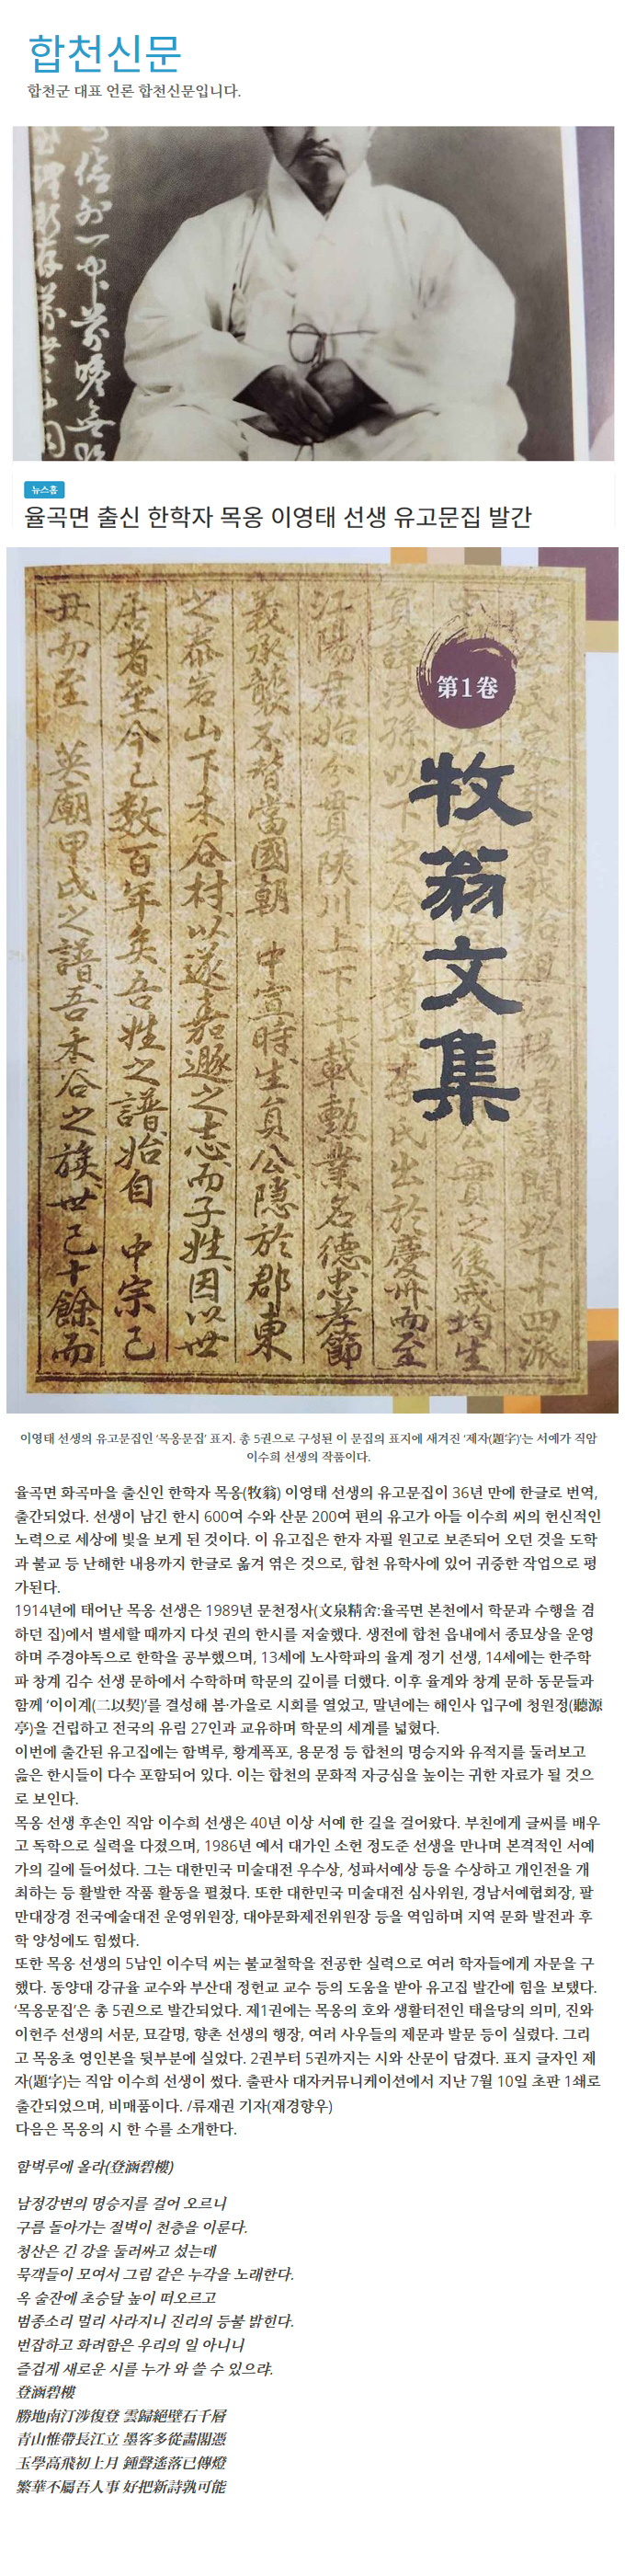 합천신문
합천군 대표 언론 합천신문입니다.
뉴스홈
율곡면 출신 한학자 목옹 이영태 선생 유고문집 발간
第1卷
牧翁文集
江陽君始分貫陜川上下千載勳業名德忠孝節
義承襲不替當國朝 中宣時生員公隱於郡東
之泰岩山下末谷村以遂嘉遯之志而子姓因以世
居者至今已數百年矣吾姓之譜始自 中宗己
丑而至 英廟甲戌之譜吾禾谷之族世已十餘而
이영태 선생의 유고문집인 '목옹문집' 표지. 총 5권으로 구성된 이 문집의 표지에 새겨진 '제자(題字)'는 서예가 직암
이수희 선생의 작품이다.
율곡면 화곡마을 출신인 한학자 목옹(牧翁) 이영태 선생의 유고문집이 36년 만에 한글로 번역,
출간되었다. 선생이 남긴 한시 600여 수와 산문 200여 편의 유고가 아들 이수희 씨의 헌신적인
노력으로 세상에 빛을 보게 된 것이다. 이 유고집은 한자 자필 원고로 보존되어 오던 것을 도학
과 불교 등 난해한 내용까지 한글로 옮겨 엮은 것으로, 합천 유학사에 있어 귀중한 작업으로 평
가된다.
1914년에 태어난 목옹 선생은 1989년 문천정사(文泉精舍:율곡면 본천에서 학문과 수행을 겸
하던 집)에서 별세할 때까지 다섯 권의 한시를 저술했다. 생전에 합천 읍내에서 종묘상을 운영
하며 주경야독으로 한학을 공부했으며, 13세에 노사학파의 율계 정기 선생, 14세에는 한주학
파 창계 김수 선생 문하에서 수학하며 학문의 깊이를 더했다. 이후 율계와 창계 문하 동문들과
함께 '이이계(二以契)'를 결성해 봄·가을로 시회를 열었고, 말년에는 해인사 입구에 청원정(聽源
亭)을 건립하고 전국의 유림 27인과 교유하며 학문의 세계를 넓혔다.
이번에 출간된 유고집에는 함벽루, 황계폭포, 용문정 등 합천의 명승지와 유적지를 둘러보고
읊은 한시들이 다수 포함되어 있다. 이는 합천의 문화적 자긍심을 높이는 귀한 자료가 될 것으
로 보인다.
목옹 선생 후손인 직암 이수희 선생은 40년 이상 서예 한 길을 걸어왔다. 부친에게 글씨를 배우
고 독학으로 실력을 다졌으며, 1986년 예서 대가인 소헌 정도준 선생을 만나며 본격적인 서예
가의 길에 들어섰다. 그는 대한민국 미술대전 우수상, 성파서예상 등을 수상하고 개인전을 개
최하는 등 활발한 작품 활동을 펼쳤다. 또한 대한민국 미술대전 심사위원, 경남서예협회장, 팔
만대장경 전국예술대전 운영위원장, 대야문화제전위원장 등을 역임하며 지역 문화 발전과 후
학 양성에도 힘썼다.
또한 목옹 선생의 5남인 이수덕 씨는 불교철학을 전공한 실력으로 여러 학자들에게 자문을 구
했다. 동양대 강규율 교수와 부산대 정헌교 교수 등의 도움을 받아 유고집 발간에 힘을 보탰다.
'목옹문집'은 총 5권으로 발간되었다. 제1권에는 목옹의 호와 생활터전인 태을당의 의미, 진와
이헌주 선생의 서문, 묘갈명, 향촌 선생의 행장, 여러 사우들의 제문과 발문 등이 실렸다. 그리
고 목옹초 영인본을 뒷부분에 실었다. 2권부터 5권까지는 시와 산문이 담겼다. 표지 글자인 제
자(題字)는 직암 이수희 선생이 썼다. 출판사 대자커뮤니케이션에서 지난 7월 10일 초판 1쇄로
출간되었으며, 비매품이다. /류재권 기자(재경향우)
다음은 목옹의 시 한 수를 소개한다.
함벽루에 올라(登涵碧樓)
남정강변의 명승지를 걸어 오르니
구름 돌아가는 절벽이 천층을 이룬다.
청산은 긴 강을 둘러싸고 섰는데
묵객들이 모여서 그림 같은 누각을 노래한다.
옥 술잔에 초승달 높이 떠오르고
범종소리 멀리 사라지니 진리의 등불 밝힌다.
번잡하고 화려함은 우리의 일 아니니
즐겁게 새로운 시를 누가 와 쓸 수 있으랴.
登涵碧樓
勝地南汀涉復登 雲歸絕壁石千層
青山惟帶長江立 墨客多從畵閣憑
玉學高飛初上月 鍾聲遙落已傳燈
繁華不屬吾人事 好把新詩孰可能